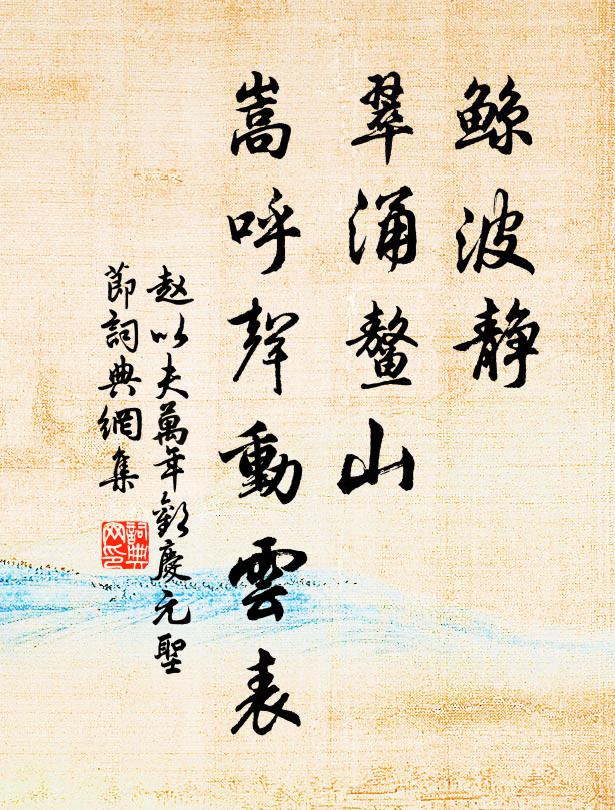 鲸波静
翠涌鳌山
嵩呼聲動雲表
赵以夫萬年歡慶元聖
節詞典網集
詞典
网